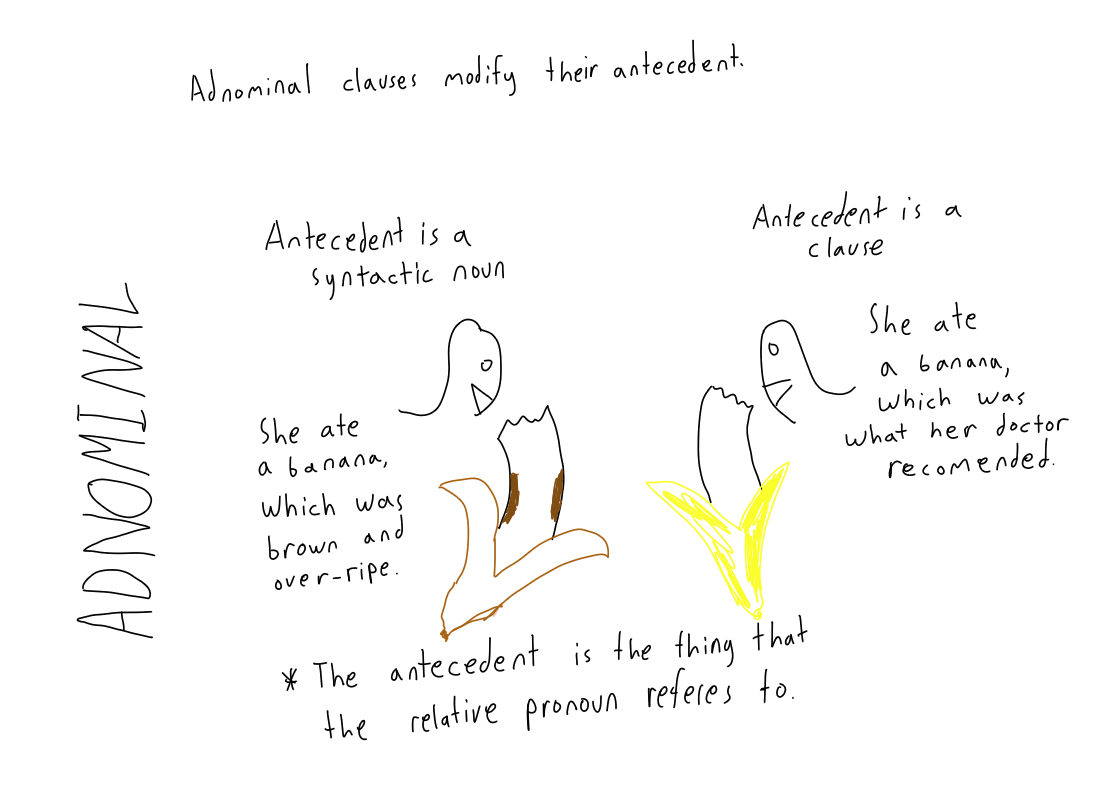 Adnominal clauses modify their antecedent.
ADNOMINAL
Antecedent is a
syntactic noun
She ate
a banana,
which was
brown and
over-ripe.
Antecedent is a
clause
She ate
a banana,
which was
what her doctor
recomended.
* The antecedent is the thing that
the relative pronoun referes to.